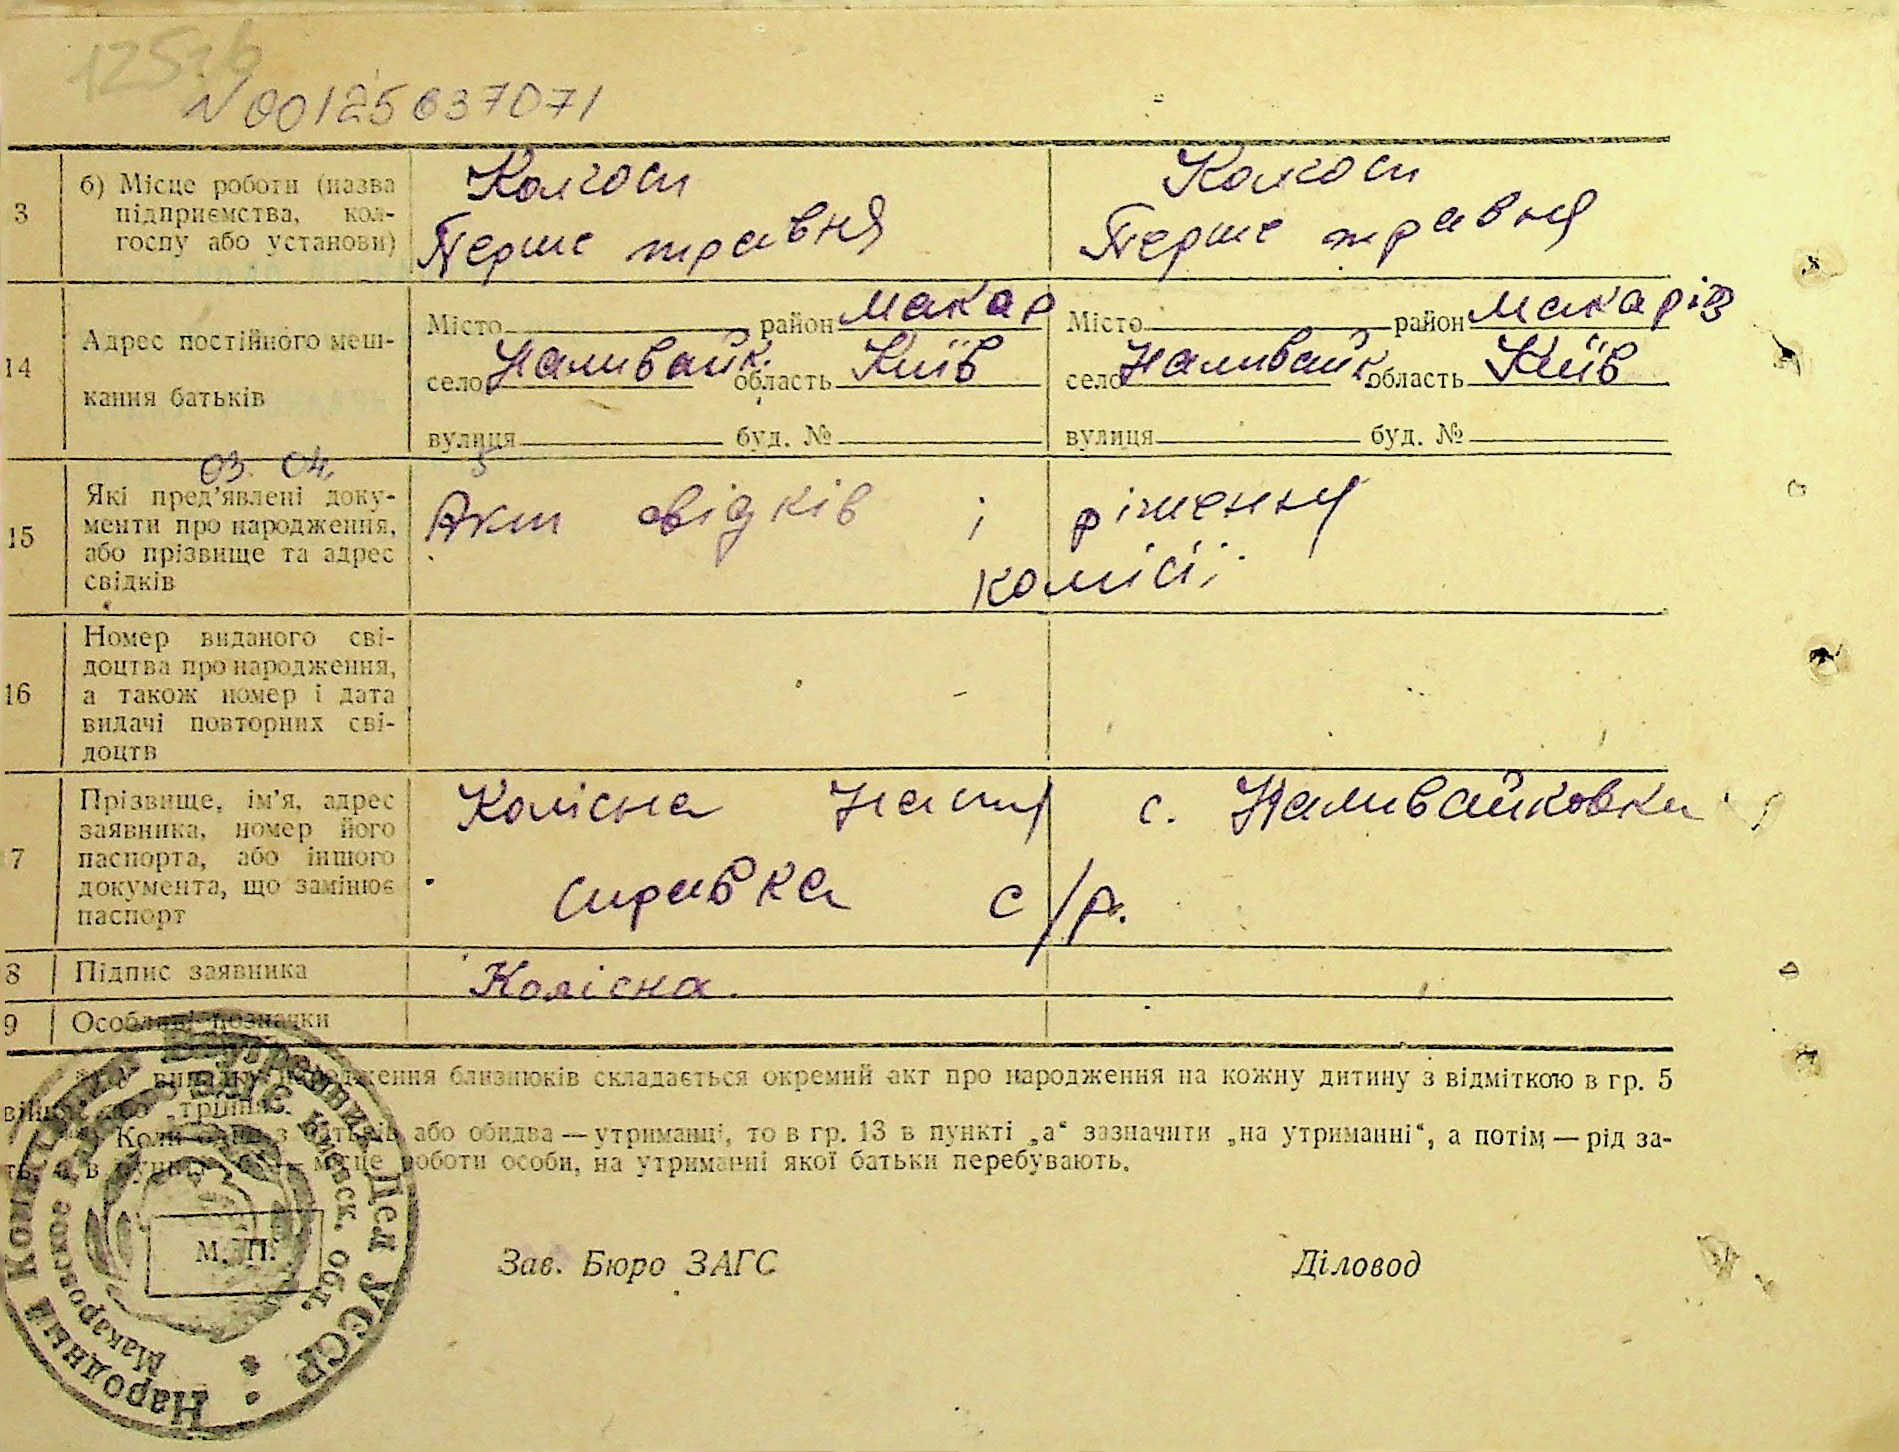 125гв
N 00125637071
3
б) Місце роботи (назва
підприємства, кол-
госпу або установи)
Колгосп
Перше травня
Колгосп
Перше травня
14
Адрес постійного меш-
кання батьків
Місто район Макар
село Наливайк. область Київ
вулиця буд. №
Місто район Макарів
село Наливайк. область Київ
вулиця буд. №
03. 04.
15
Які пред'явлені доку-
менти про народження,
або прізвище та адрес
свідків
Акт свідків і рішення
комісії
16
Номер виданого сві-
доцтва про народження,
а також номер і дата
видачі повторних сві-
доцтв
7
Прізвище, ім'я, адрес
заявника, номер його
паспорта, або іншого
документа, що замінює
паспорт
Колісна Наст с. Наливайковка
справка с/р.
8
Підпис заявника
Колісна.
9
Особливі позначки
народження близнюків складається окремий акт про народження на кожну дитину з відміткою в гр. 5
„трійня“.
Коли один з батьків або обидва — утриманці, то в гр. 13 в пункті „а“ зазначити „на утриманні“, а потім — рід за-
місце роботи особи, на утриманні якої батьки перебувають.
М. П.
Зав. Бюро ЗАГС
Діловод
Народный Комиссариат Внутренних Дел УССР
Макаровское ЗАГС Киевск. обл.